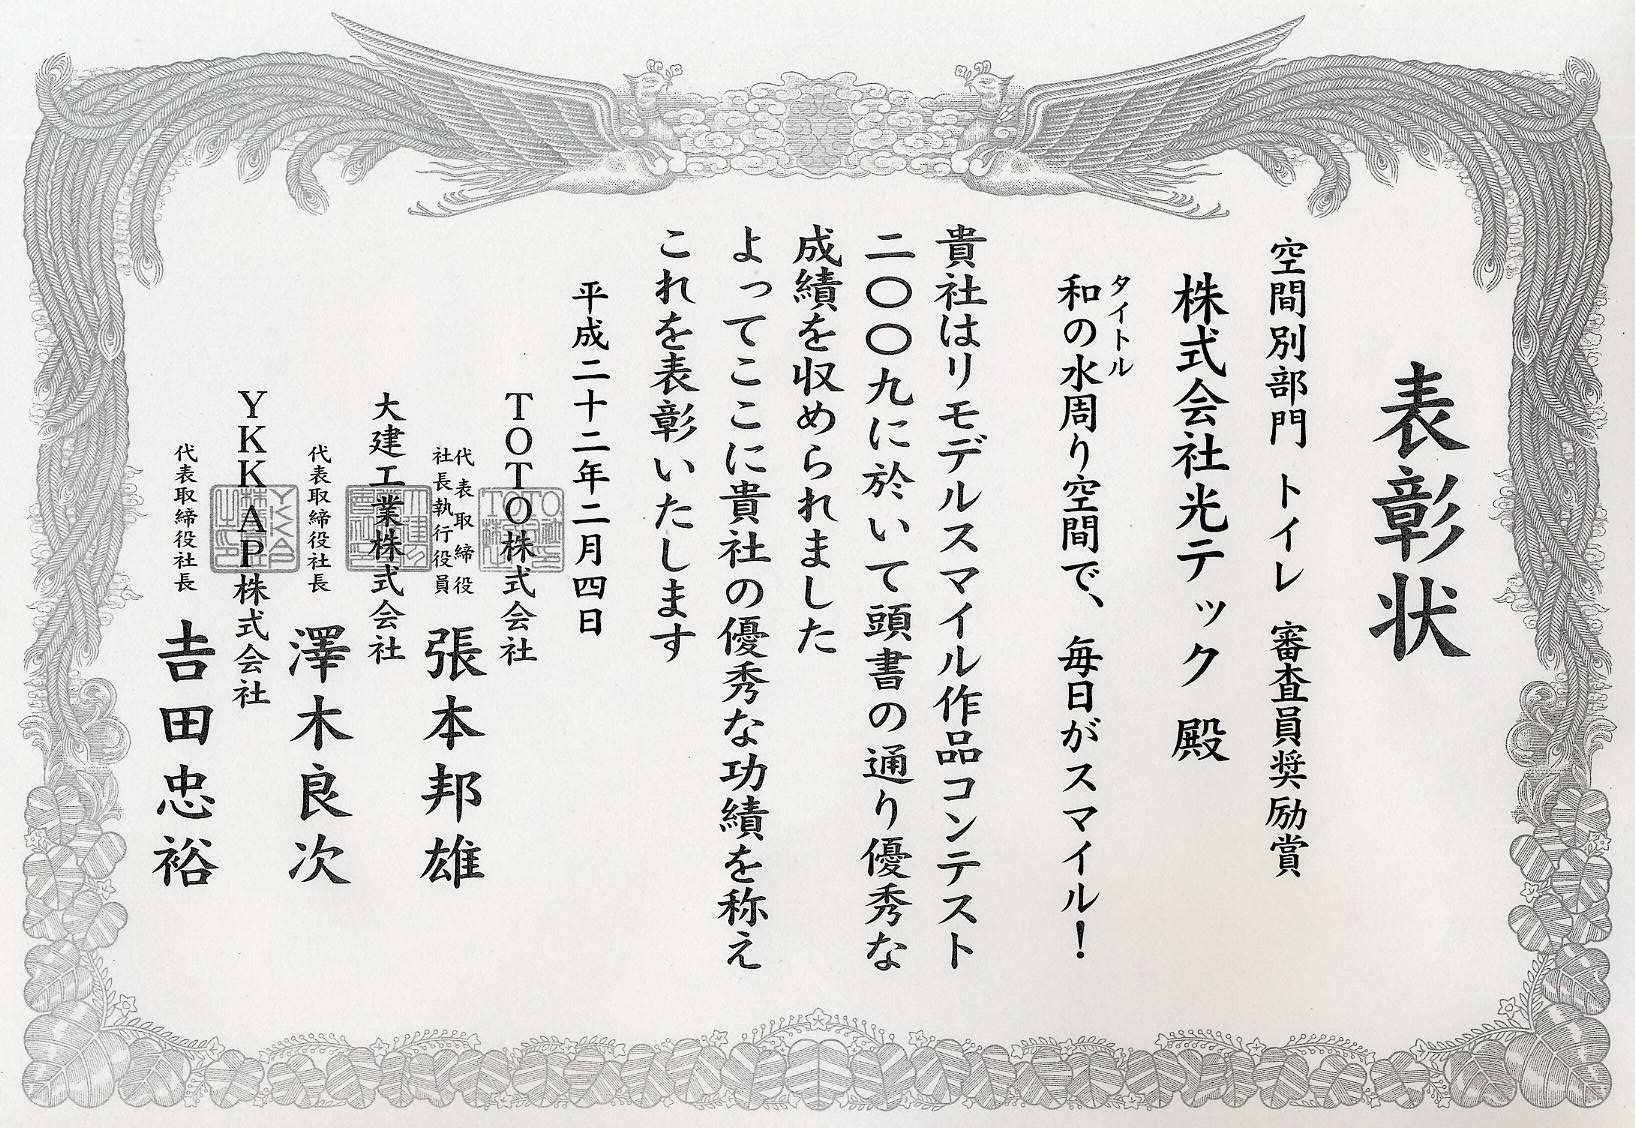 表彰状
空間別部門 トイレ 審査員奨励賞
株式会社光テック 殿
タイトル
和の水周り空間で、毎日がスマイル！
貴社はリモデルスマイル作品コンテスト
二〇〇九に於いて頭書の通り優秀な
成績を収められました
よってここに貴社の優秀な功績を称え
これを表彰いたします
平成二十二年二月四日
TOTO株式会社
代表取締役
社長執行役員
張本邦雄
大建工業株式会社
代表取締役社長 澤木良次
YKK AP株式会社
代表取締役社長 吉田忠裕